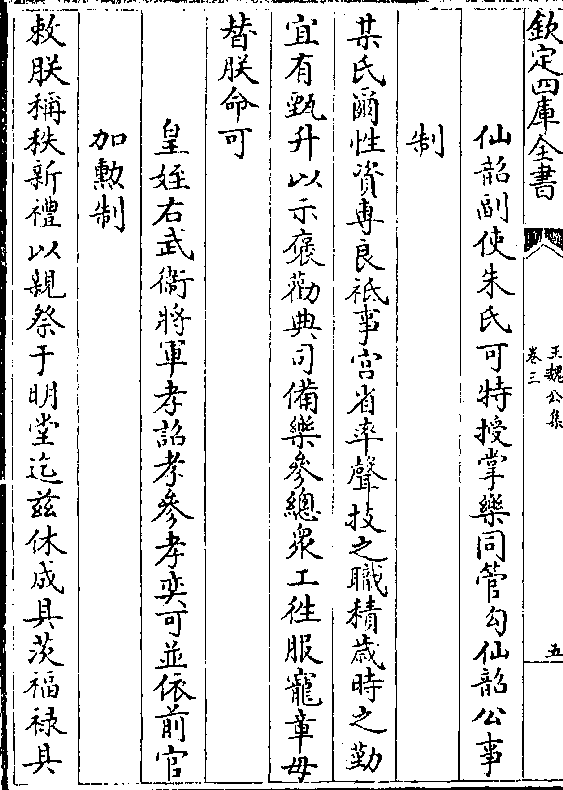 欽定四庫全書
王魏公集
卷三
五
仙韶副使朱氏可特授掌樂同管勾仙韶公事
制
某氏爾性資專良祗事宫省率聲技之職積歲時之勤
宜有甄升以示褒勸典司備樂參總衆工徃服寵章毋
替朕命可
皇姪右武衛將軍孝詒孝參孝奕可並依前官
加勲制
敕朕稱秩新禮以親祭于明堂迄兹休成具茨福禄具